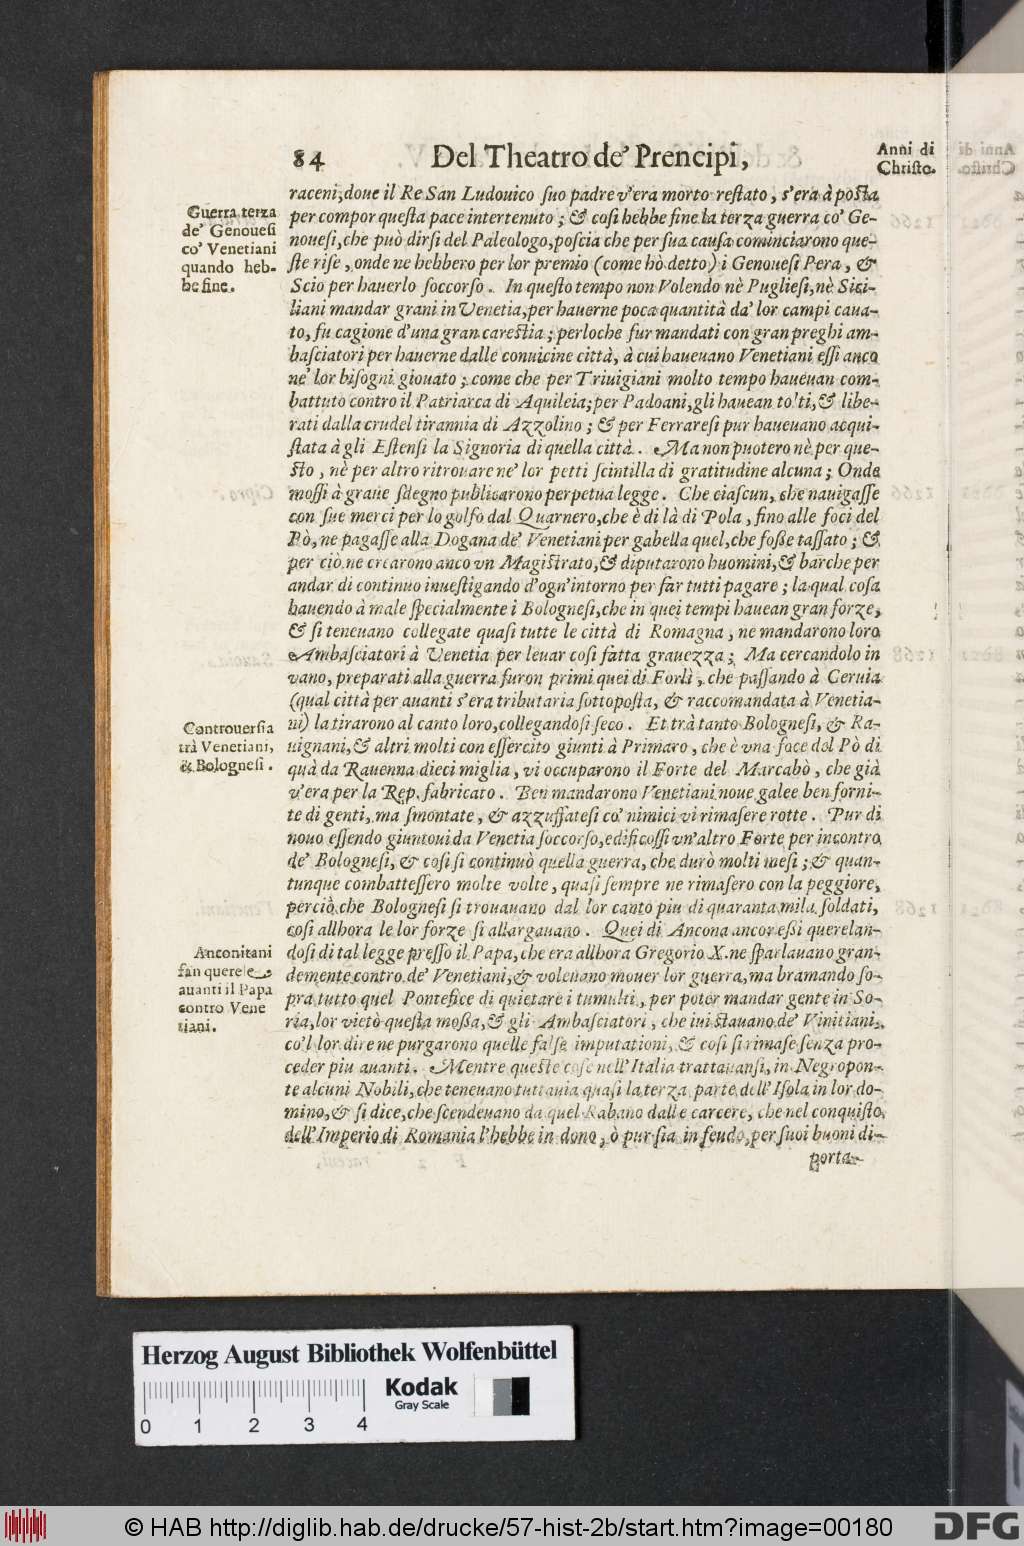 84 Del Theatro de' Prencipi, Anni di
Christo.
raceni, doue il Re San Ludouico suo padre v'era morto restato, s'era à posta
per compor questa pace intertenuto; & cosi hebbe fine la terza guerra co' Ge-
nouesi, che può dirsi del Paleologo, poscia che per sua causa cominciarono que-
ste rise, onde ne hebbero per lor premio (come hò detto) i Genouesi Pera, &
Scio per hauerlo soccorso. In questo tempo non Volendo nè Pugliesi, nè Sici-
liani mandar grani in Venetia, per hauerne poca quantità da' lor campi caua-
to, fu cagione d'una gran carestia; perloche fur mandati con gran preghi am-
basciatori per hauerne dalle conuicine città, à cui haueuano Venetiani essi anco
ne' lor bisogni giouato; come che per Triuigiani molto tempo haueuan com-
battuto contro il Patriarca di Aquileia; per Padoani, gli hauean tolti, & libe-
rati dalla crudel tirannia di Azzolino; & per Ferraresi pur haueuano acqui-
stata à gli Estensi la Signoria di quella città. Ma non puotero nè per que-
sto, nè per altro ritrouare ne' lor petti scintilla di gratitudine alcuna; Onde
mossi à graue sdegno publicarono perpetua legge. Che ciascun, che nauigasse
con sue merci per lo golfo dal Quarnero, che è di là di Pola, fino alle foci del
Pò, ne pagasse alla Dogana de' Venetiani per gabella quel, che fosse tassato; &
per ciò ne crearono anco vn Magistrato, & diputarono huomini, & barche per
andar di continuo inuestigando d'ogn'intorno per far tutti pagare; la qual cosa
hauendo à male specialmente i Bolognesi, che in quei tempi hauean gran forze,
& si teneuano collegate quasi tutte le città di Romagna, ne mandarono loro
Ambasciatori à Venetia per leuar cosi fatta grauezza; Ma cercandolo in
vano, preparati alla guerra furon primi quei di Forlì, che passando à Ceruia
(qual città per auanti s'era tributaria sottoposta, & raccomandata à Venetia-
ni) la tirarono al canto loro, collegandosi seco. Et trà tanto Bolognesi, & Ra-
uignani, & altri molti con essercito giunti à Primaro, che è vna foce del Pò di
quà da Rauenna dieci miglia, vi occuparono il Forte del Marcabò, che già
v'era per la Rep. fabricato. Ben mandarono Venetiani noue galee ben forni-
te di genti, ma smontate, & azzuffatesi co' nimici vi rimasere rotte. Pur di
nouo essendo giuntoui da Venetia soccorso, edificossi vn'altro Forte per incontro
de' Bolognesi, & cosi si continuò quella guerra, che durò molti mesi; & quan-
tunque combattessero molte volte, quasi sempre ne rimasero con la peggiore,
perciò che Bolognesi si trouauano dal lor canto piu di quaranta mila soldati,
cosi allhora le lor forze si allargauano. Quei di Ancona ancor essi querelan-
dosi di tal legge presso il Papa, che era allhora Gregorio X. ne sparlauano gran-
demente contro de' Venetiani, & voleuano mouer lor guerra, ma bramando so-
pra tutto quel Pontefice di quietare i tumulti, per poter mandar gente in So-
ria, lor vietò questa mossa, & gli Ambasciatori, che iui stauano de' Vinitiani,
co'l lor dire ne purgarono quelle false imputationi, & cosi si rimase senza pro-
ceder piu auanti. Mentre queste cose nell'Italia trattauansi, in Negropon-
te alcuni Nobili, che teneuano tuttauia quasi la terza parte dell'Isola in lor do-
mino, & si dice, che scendeuano da quel Rabano dalle carcere, che nel conquisto
dell'Imperio di Romania l'hebbe in dono, ò pur sia in feudo, per suoi buoni di-
porta-
Guerra terza
de' Genouesi
co' Venetiani
quando heb-
be fine.
Controuersia
trà Venetiani,
& Bolognesi.
Anconitani
fan querele
auanti il Papa
contro Vene
tiani.
Herzog August Bibliothek Wolfenbüttel
Kodak
Gray Scale
0 1 2 3 4
© HAB http://diglib.hab.de/drucke/57-hist-2b/start.htm?image=00180
DFG